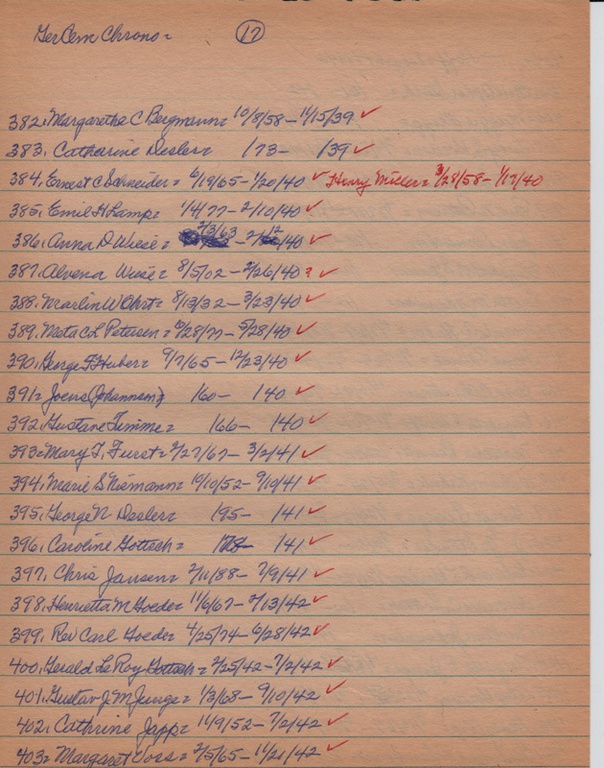 GerCem Chrono= 17
382. Margaretha C Bergmann= 10/8/58-11/15/39 ✓
383. Catharine Desler= /73- /39 ✓
384. Ernest C Schneider= 6/19/65-1/20/40 ✓ Henry Miller= 3/28/58-1/17/40
385. Emil H Lamp= 1/4/77-2/10/40 ✓
386. Anna D Wiese= 2/3/63-2/12/40 ✓
387. Alvena Wiese= 8/5/02-2/26/40? ✓
388. Marlin W Ohrt= 8/13/32-3/23/40 ✓
389. Meta C L Petersen= 6/28/77-5/28/40 ✓
390. George F Huber= 9/7/65-12/23/40 ✓
391= Joens Johannsen= 160- 140 ✓
392. Gustave Timme= 166- 140 ✓
393= Mary T. Furst= 2/27/67-3/2/41 ✓
394. Marie S Niemann= 10/10/52-9/10/41 ✓
395. George N Desler= 195- 141 ✓
396. Caroline Gottsch= 141 ✓
397. Chris Jansen= 2/11/88-7/9/41 ✓
398. Henrietta M Goede= 11/6/67-2/13/42 ✓
399. Rev Carl Goede= 4/25/74-6/28/42 ✓
400. Gerald Le Roy Gottsch= 2/25/42-7/2/42 ✓
401. Gustav J. M Junge= 1/3/68-9/10/42 ✓
402. Cathrine Japp= 11/9/52-7/2/42 ✓
403= Margaret Voss= 2/5/65-11/21/42 ✓